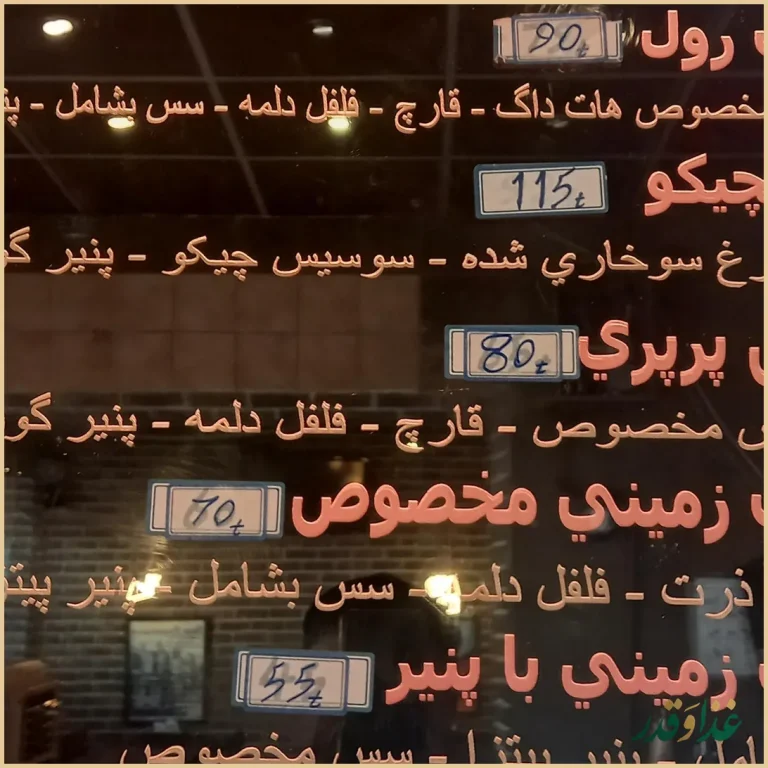 رول 90t
مخصوص هات داگ - قارچ - فلفل دلمه - سس بشامل -
چيكو 115t
سوخاري شده - سوسيس چيكو - پنير
پرپري 80t
مخصوص - قارچ - فلفل دلمه - پنير
زميني مخصوص 70t
ذرت - فلفل دلمه - سس بشامل - پنير
زميني با پنير 55t
پنير پيتزا - سس مخصوص
غذا و قدر